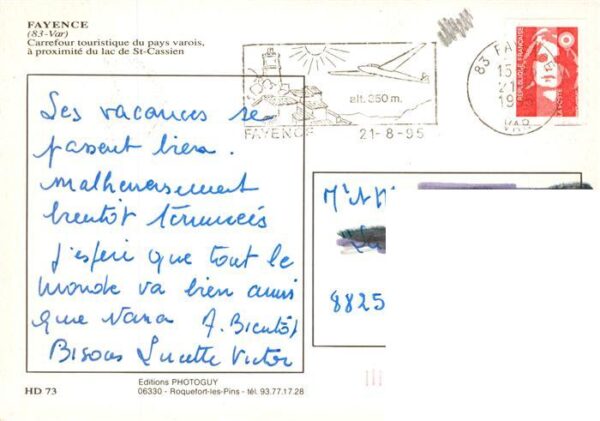 FAYENCE
(83-Var)
Carrefour touristique du pays varois,
à proximité du lac de St-Cassien
alt. 350 m.
FAYENCE 21-8-95
83 FAY
15
21
19
VAR
REPUBLIQUE FRANÇAISE
Les vacances se
passent bien.
malheureusement
bientôt terminées
j'espère que tout le
monde va bien ainsi
que Nana A. Bientôt
Bisous Lucette Victor
8825
HD 73
Editions PHOTOGUY
06330 - Roquefort-les-Pins - tél. 93.77.17.28